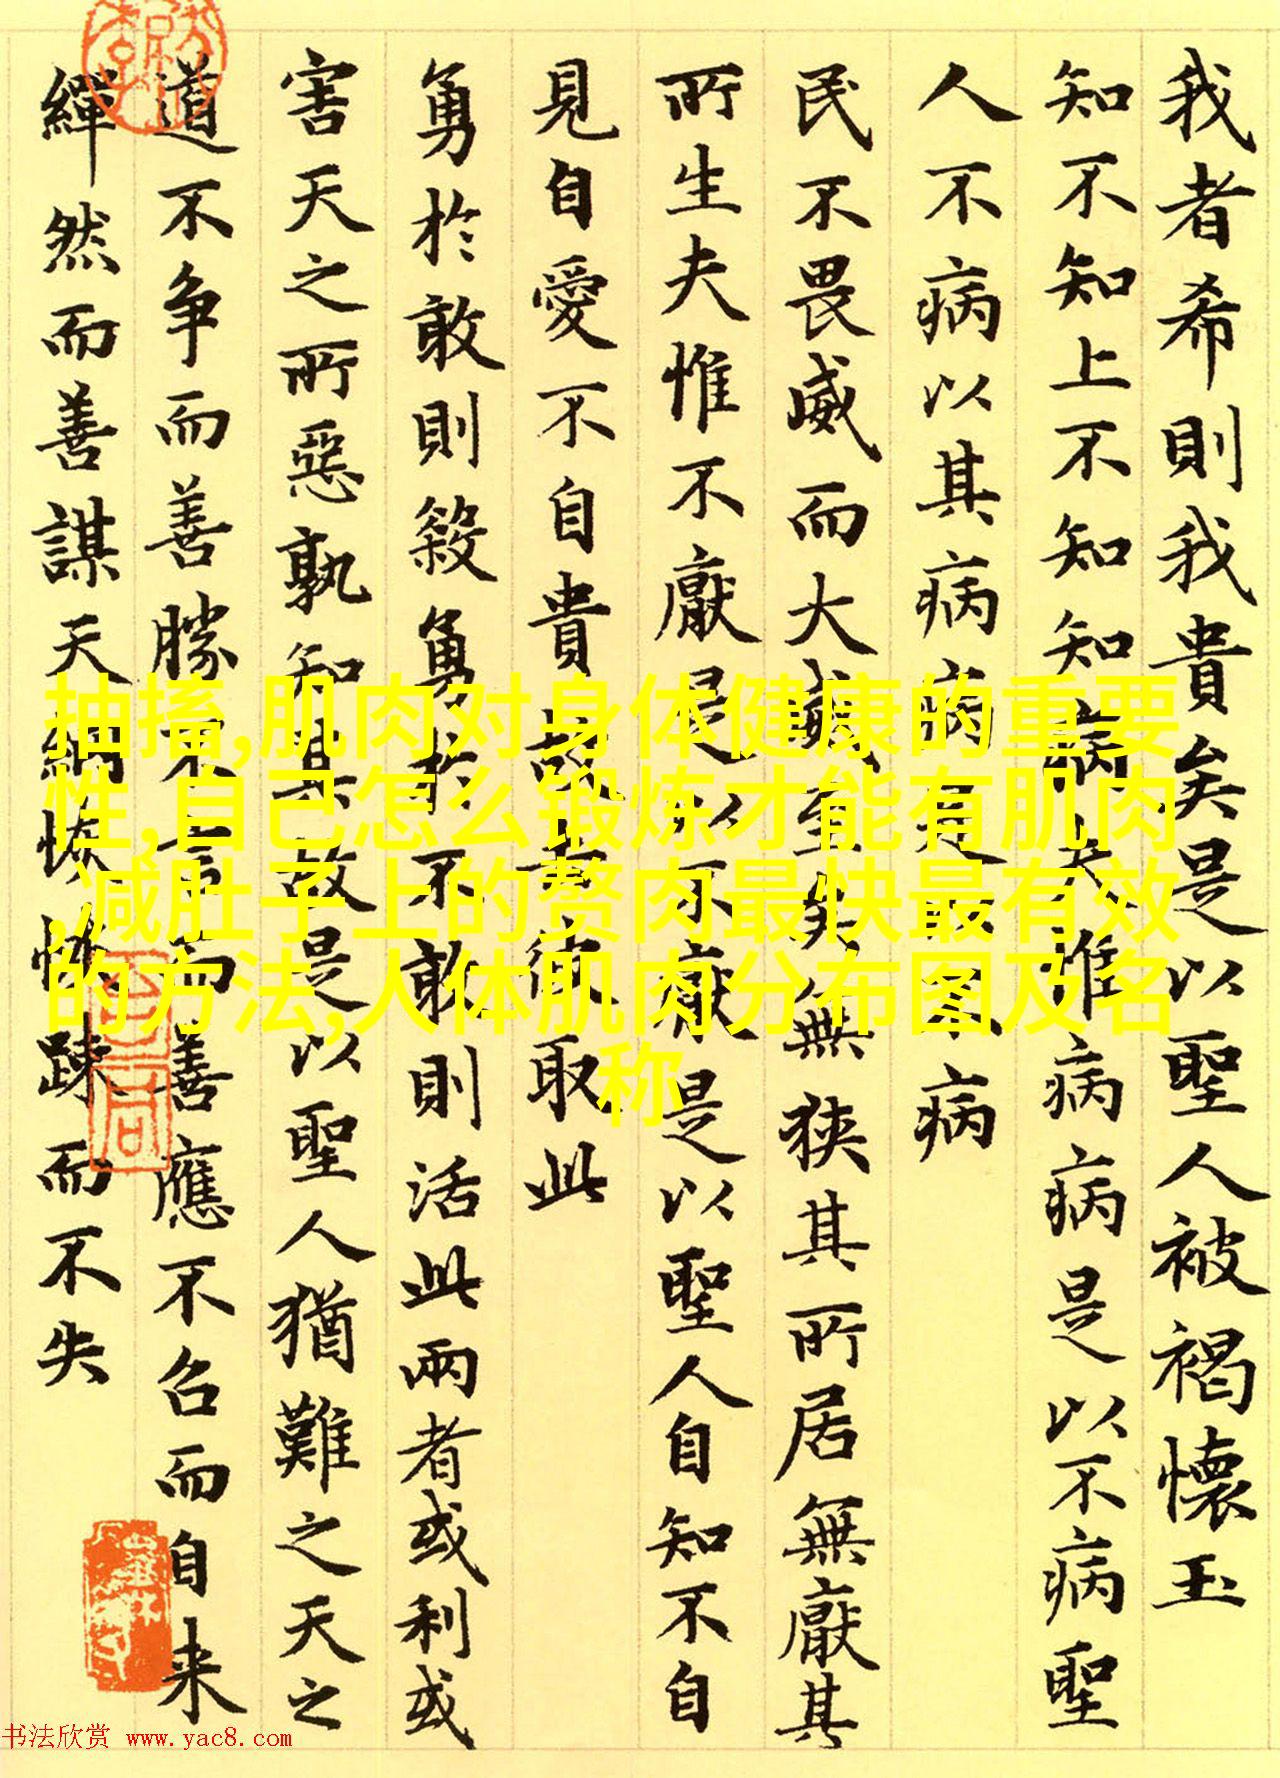 我者希則我貴矣是以聖人被褐懷玉
知不知上不知知病夫惟病病是以不病聖
人不病以其病病是以不病
民不畏威而大威至矣無狹其所居無厭其
所生夫惟不厭是以不厭是以聖人自知不自
見自愛不自貴故去彼取此
勇於敢則殺勇於不敢則活此兩者或利或
害天之所惡孰知其故是以聖人猶難之天之
道不争而善勝不言而善應不召而自来
繟然而善謀天網恢恢踈而不失
抽搐,肌肉对身体健康的重要
性,自己怎么锻炼才能有肌肉
,减肚子上的赘肉最快最有效
的方法,人体肌肉分布图及名
称
书法欣赏 www.yac8.com